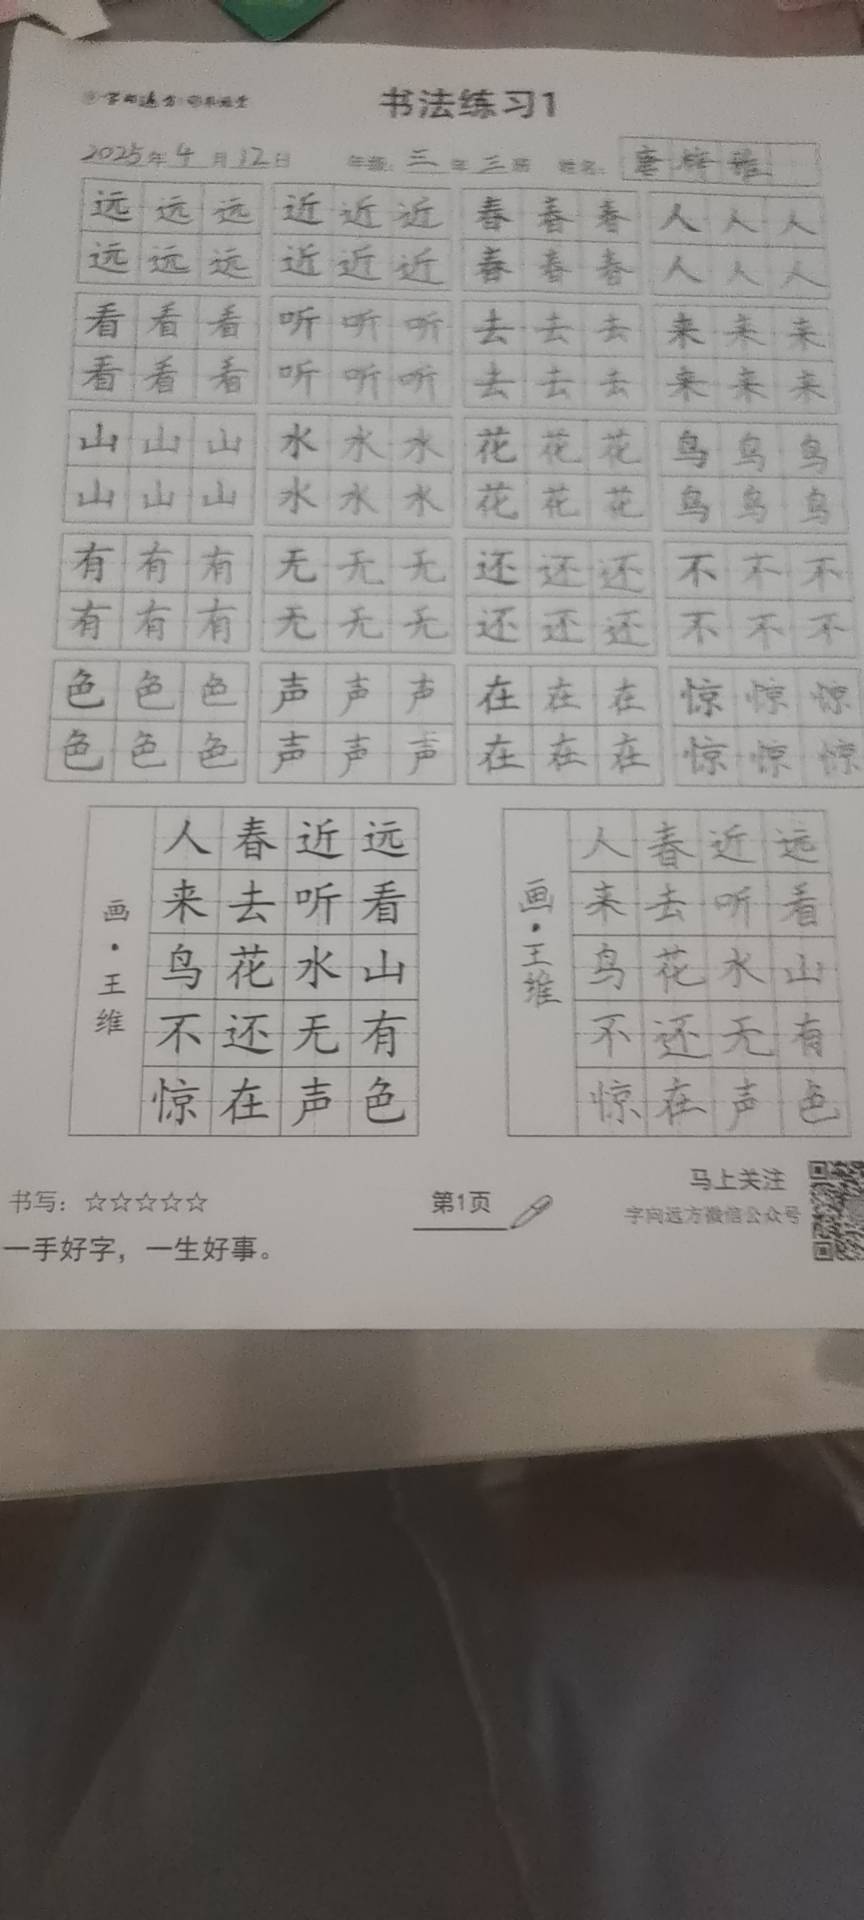 书法练习1
2025年4月12日 年级：三年三班 姓名：唐
远远远 近近近 春春春 人人人
远远远 近近近 春春春 人人人
看看看 听听听 去去去 来来来
看看看 听听听 去去去 来来来
山山山 水水水 花花花 鸟鸟鸟
山山山 水水水 花花花 鸟鸟鸟
有有有 无无无 还还还 不不不
有有有 无无无 还还还 不不不
色色色 声声声 在在在 惊惊惊
色色色 声声声 在在在 惊惊惊
远看山有色
近听水无声
春去花还在
人来鸟不惊
画·王维
远看山有色
近听水无声
春去花还在
人来鸟不惊
画·王维
书写：☆☆☆☆☆
一手好字，一生好事。
第1页
马上关注
字向远方微信公众号